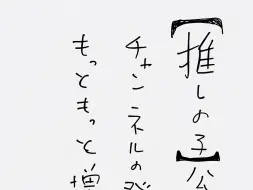 【推しの子】公
チャンネルの登
もっともっと増